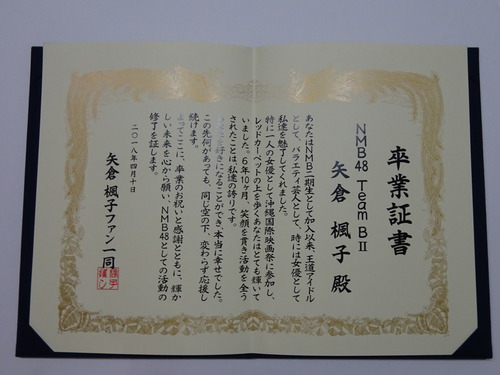 卒業証書
NMB48 Team BⅡ
矢倉 楓子 殿
あなたはNMB二期生として加入以来、王道アイドル
として、バラエティ芸人として、時には女優として
私達を魅了してくれました。
特に一人の女優として沖縄国際映画祭に参加し、
レッドカーペットの上を歩くあなたはとても輝いて
いました。6年10ヶ月、笑顔を貫き活動を全う
されたことは、私達の誇りです。
を好きになることができ、本当に幸せでした。
この先何があっても、同じ空の下、変わらず応援し
続けます。
よってここに、卒業のお祝いと感謝とともに、輝か
しい未来を心から願い、NMB48としての活動の
修了を証します。
二〇一八年四月十日
矢倉 楓子ファン一同